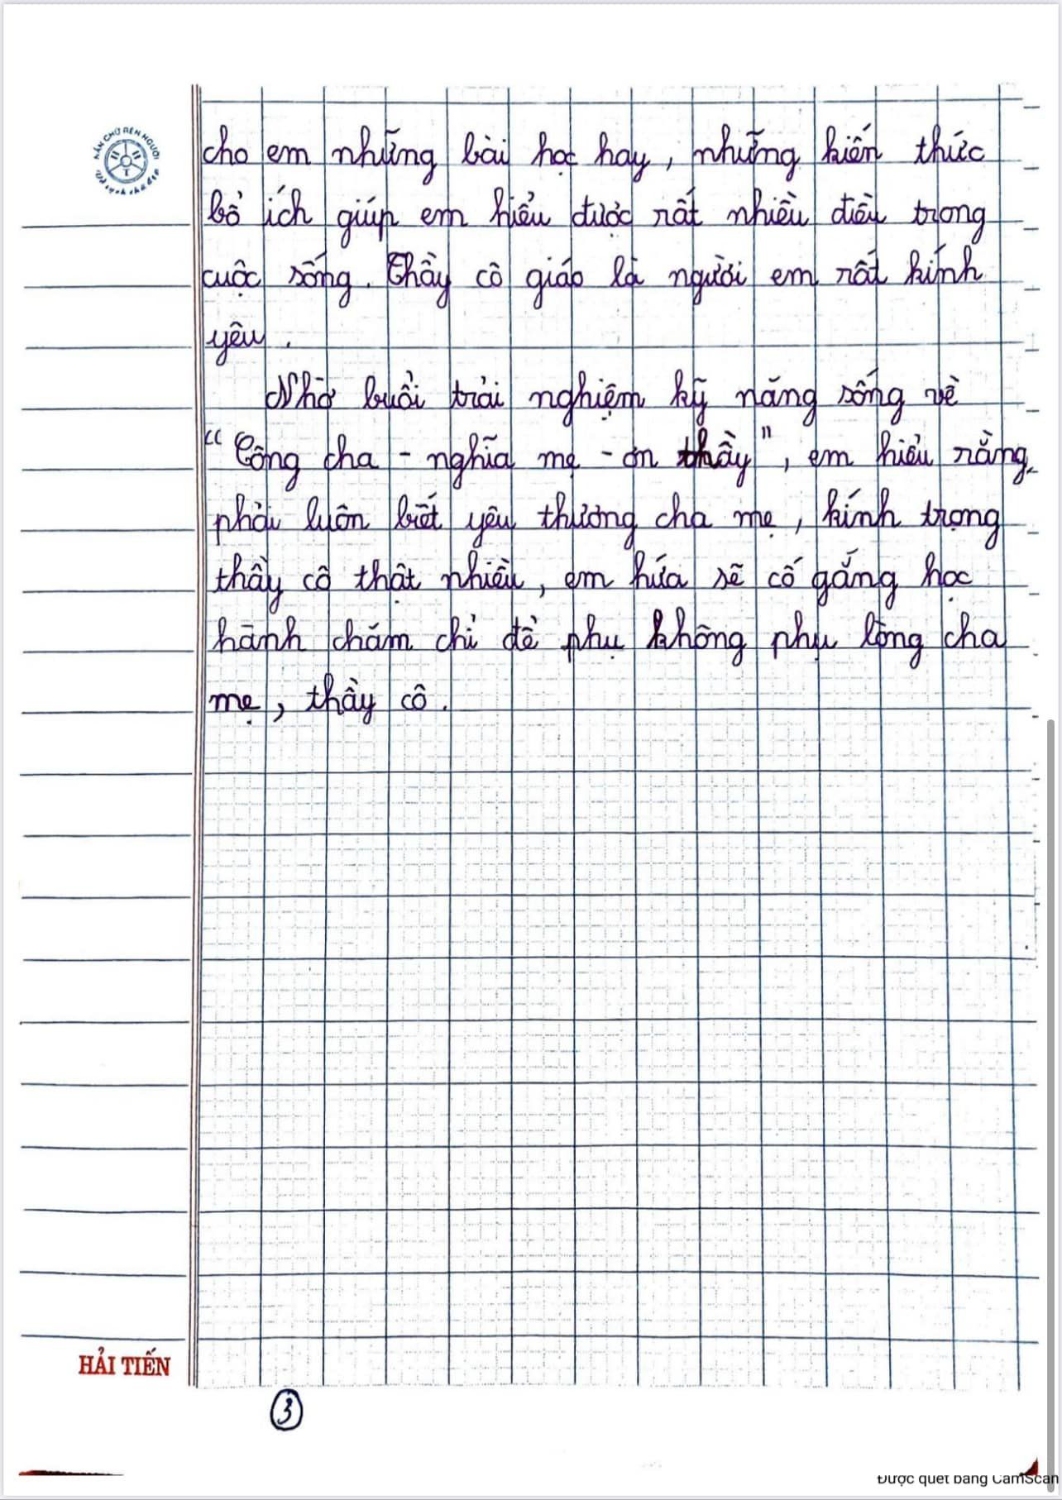 RÈN CHỮ RÈN NGƯỜI
cho em những bài học hay, những kiến thức
bổ ích giúp em hiểu được rất nhiều điều trong
cuộc sống. Thầy cô giáo là người em rất kính
yêu.
Nhờ buổi trải nghiệm kỹ năng sống về
"Công cha - nghĩa mẹ - ơn thầy", em hiểu rằng
phải luôn biết yêu thương cha mẹ, kính trọng
thầy cô thật nhiều, em hứa sẽ cố gắng học
hành chăm chỉ để phụ không phụ lòng cha
mẹ, thầy cô.
HẢI TIẾN
3
Được quét bằng CamScan